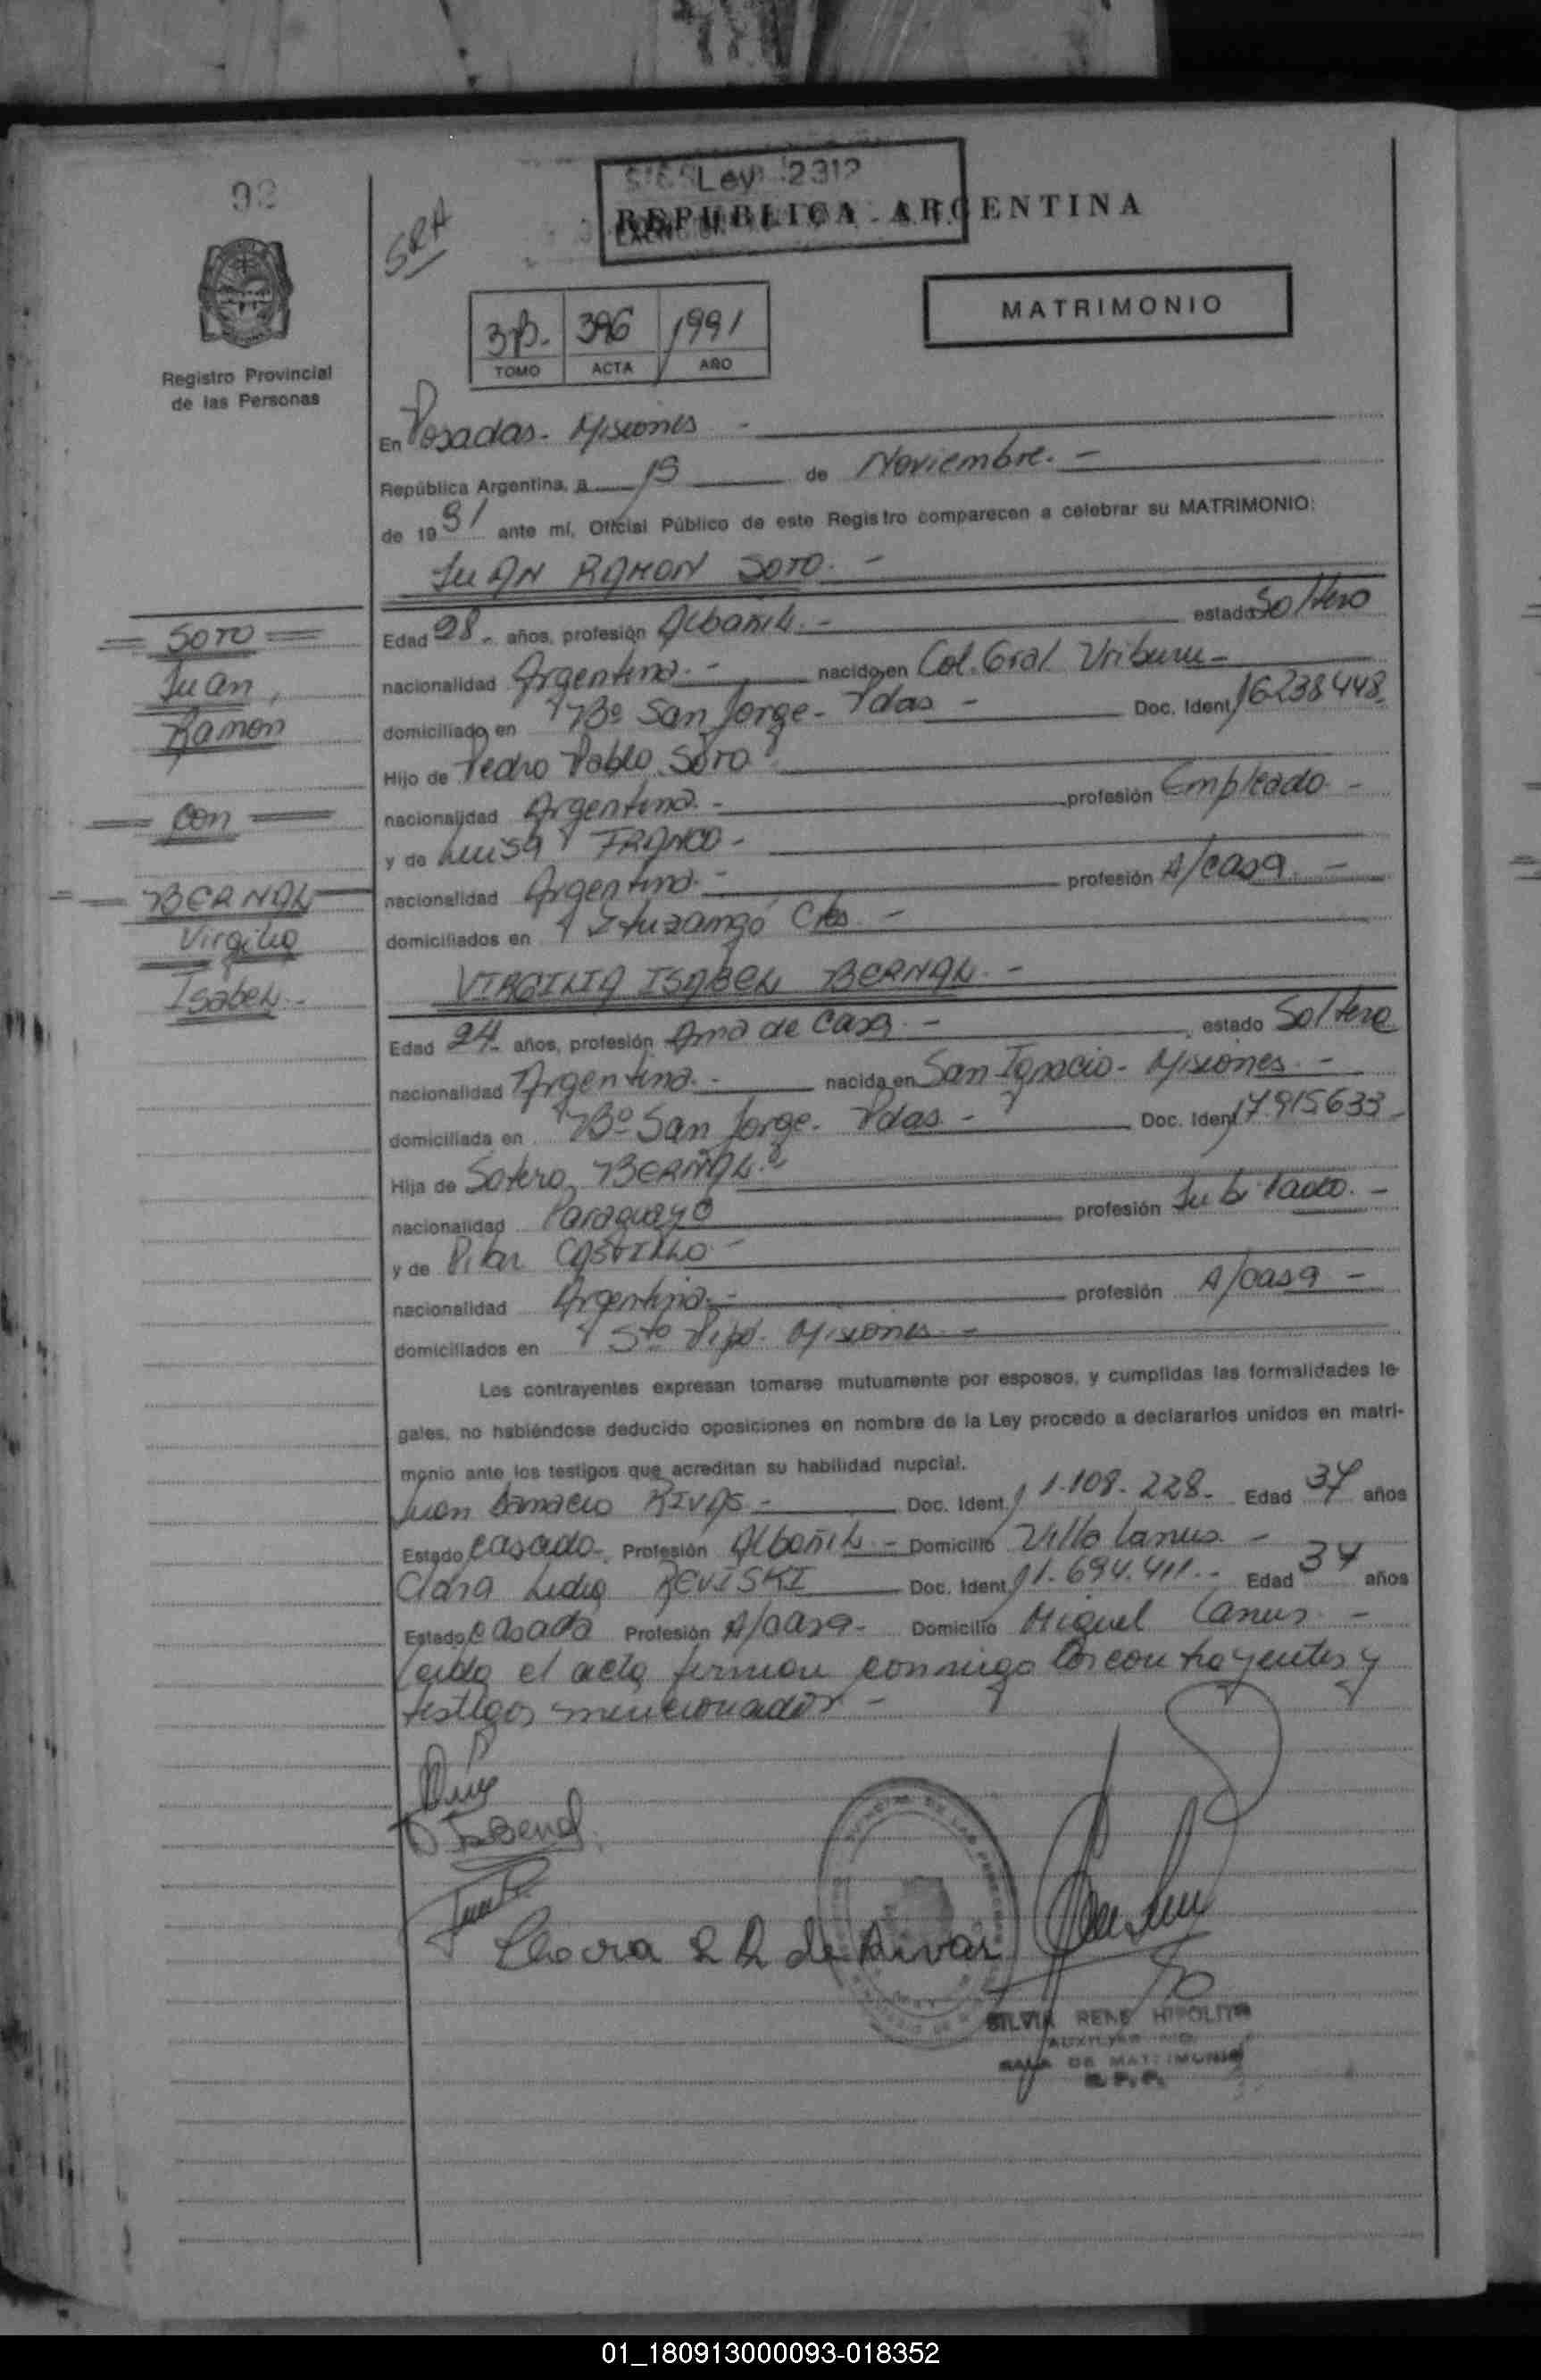 92
SRA
Ley 2312
REPUBLICA ARGENTINA
MATRIMONIO
3B. 396 1991
TOMO ACTA AÑO
Registro Provincial
de las Personas
En Posadas - Misiones -
República Argentina, a 19 de Noviembre. -
de 1991 ante mí, Oficial Público de este Registro comparecen a celebrar su MATRIMONIO:
JUAN RAMON SOTO. -
Edad 28 - años, profesión Albañil. - estado Soltero
nacionalidad Argentina. - nacido en Col. Gral Uriburu -
domiciliado en Bº San Jorge - Pdas - Doc. Ident 16238448.
Hijo de Pedro Pablo Soto
nacionalidad Argentina. - profesión Empleado. -
y de Luisa FRANCO -
nacionalidad Argentina. - profesión A/casa. -
domiciliados en Ituzangó Ctes. -
VIRGILIA ISABEL BERNAL. -
Edad 24 años, profesión Ama de Casa. - estado Soltera
nacionalidad Argentina. - nacida en San Ignacio - Misiones. -
domiciliada en Bº San Jorge - Pdas. - Doc. Ident 17915633 -
Hija de Sotero BERNAL. -
nacionalidad Paraguayo profesión Jubilado. -
y de Pilar CASTILLO -
nacionalidad Argentina. - profesión A/casa -
domiciliados en Sto Pipó - Misiones -
Los contrayentes expresan tomarse mutuamente por esposos, y cumplidas las formalidades le-
gales, no habiéndose deducido oposiciones en nombre de la Ley procedo a declararlos unidos en matri-
monio ante los testigos que acreditan su habilidad nupcial.
Juan Damacio RIVAS - Doc. Ident 11.108.228 - Edad 37 años
Estado casado - Profesión Albañil - Domicilio Villa Lanus -
Clara Lidia REVISKI Doc. Ident 11.694.411 - Edad 34 años
Estado casada Profesión A/casa - Domicilio Miguel Lanus -
Leida el acta firman conmigo los contrayentes y
testigos mencionados -
= SOTO =
Juan,
Ramon
= con =
= BERNAL
Virgilia
Isabel -
de Rivas
SILVIA RENE HIPOLITO
SALA DE MATRIMONIO
R. P. P.
01_180913000093-018352